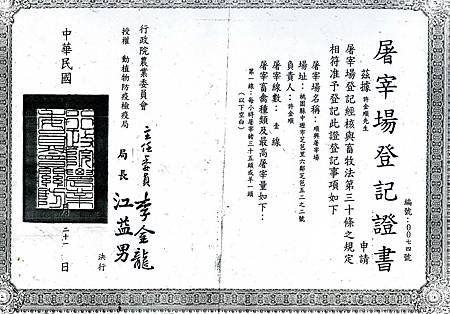 屠宰場登記證書
編號：00七四號
茲據 許金順先生 申請
屠宰場登記經核與畜牧法第三十條之規定
相符准予登記此證登記事項如下
屠宰場名稱：順興屠宰場
場址：桃園縣中壢市芝芭里六鄰芝芭五二之二號
負責人：許金順
屠宰線數：壹線
屠宰畜禽種類及最高屠宰量如下：
第一線：每小時屠宰豬三十五頭或羊一頭
（以下空白）
行政院農業委員會
授權 動植物防疫檢疫局
主任委員 李金龍
局長 江益男 決行
中華民國
月
二十一
日